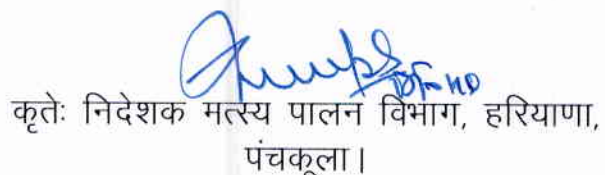 कृतेः निदेशक मत्स्य पालन विभाग, हरियाणा,
पंचकूला।